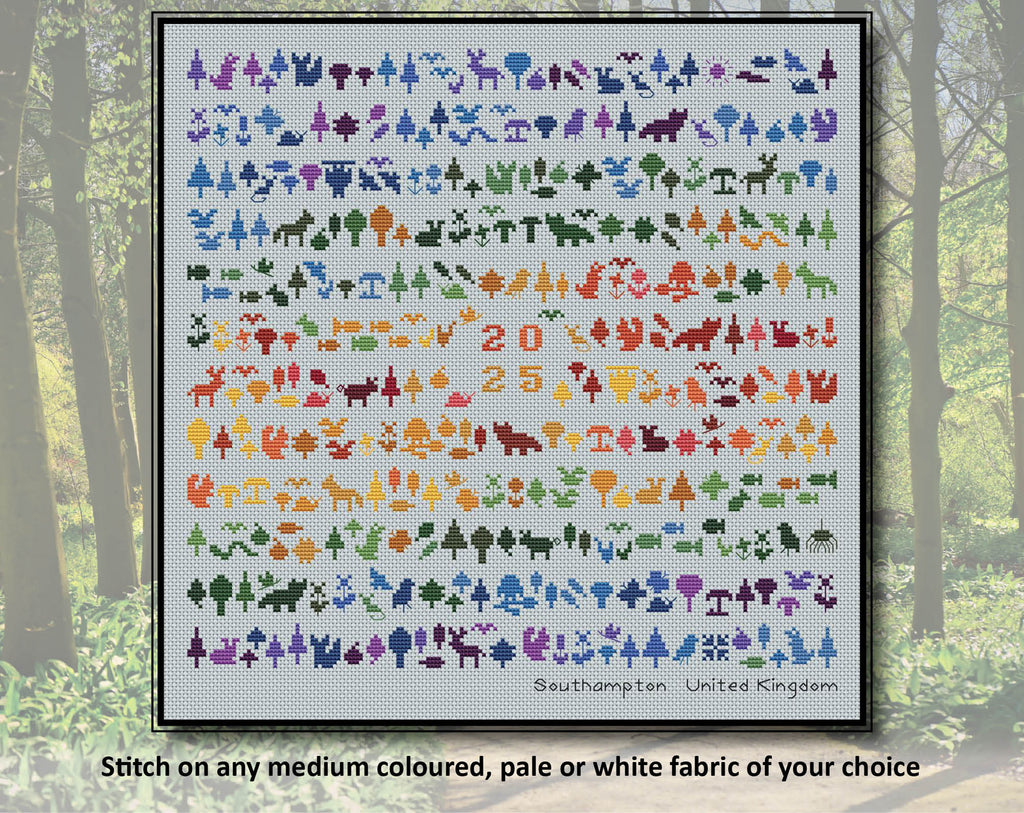 20
25
Southampton United Kingdom
Stitch on any medium coloured, pale or white fabric of your choice